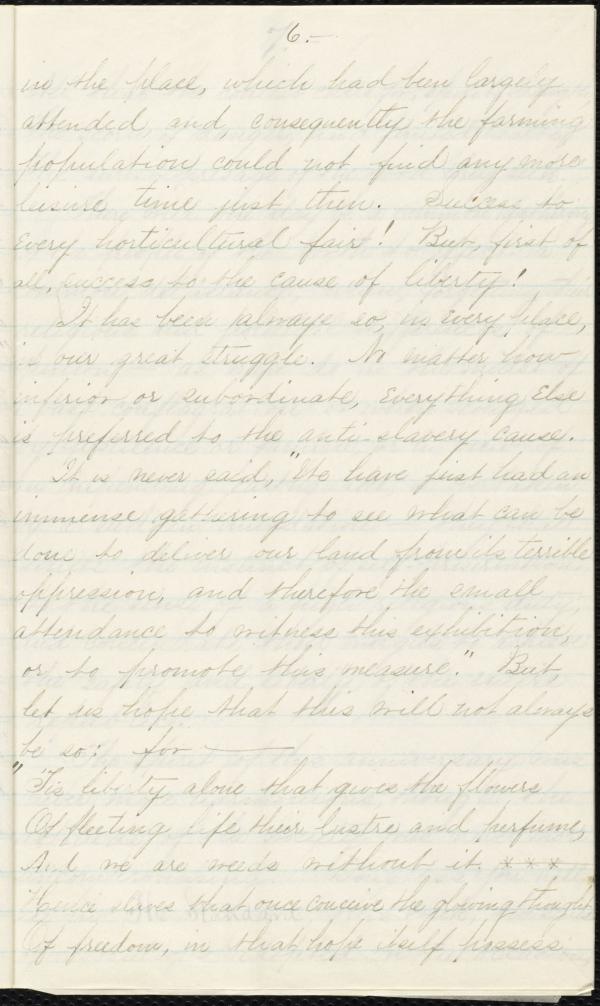 6.-
in the place, which had been largely
attended, and, consequently the farming
population could not find any more
leisure time just then. Success to
every horticultural fair! But, first of
all, success to the cause of liberty!
It has been always so, in every place,
in our great struggle. No matter how
inferior or subordinate, everything else
is preferred to the anti-slavery cause.
It is never said, "We have just had an
immense gathering to see what can be
done to deliver our land from its terrible
oppression, and therefore the small
attendance to witness this exhibition,
or to promote this measure." But,
let us hope that this will not always
be so: for ———
"'Tis liberty alone that gives the flowers
Of fleeting life their lustre and perfume,
And we are weeds without it. * * *
Hence slaves that once conceive the glowing thought
Of freedom, in that hope itself possess